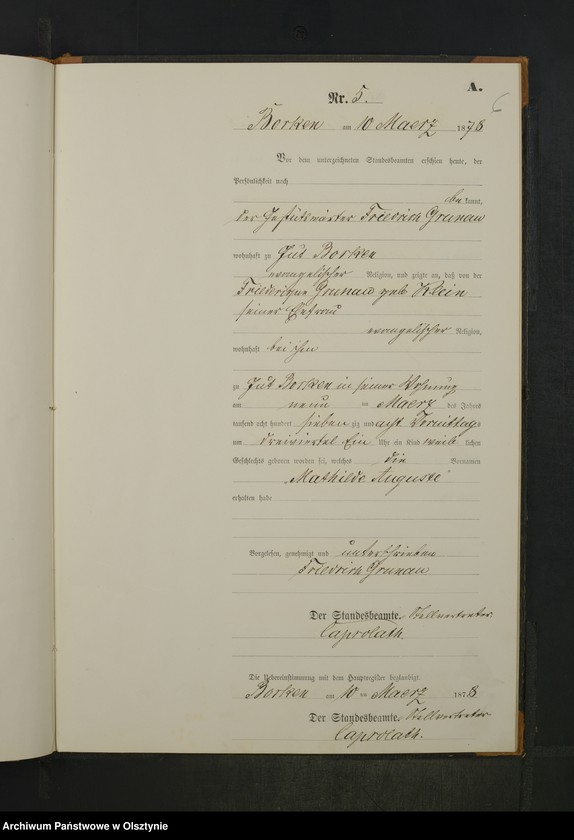 A.
Nr. 5.
6
Borken am 10 Maerz 1878
Vor dem unterzeichneten Standesbeamten erschien heute, der
Persönlichkeit nach
be kannt,
der Gestütwärter Friedrich Grunau
wohnhaft zu Gut Borken
evangelischer Religion, und zeigte an, daß von der
Friederique Grunau geb Klein
seiner Ehefrau
evangelischer Religion,
wohnhaft bei ihm
zu Gut Borken in seiner Wohnung
am neun ten Maerz des Jahres
tausend acht hundert sieben zig und acht Vormittags
um dreiviertel Ein Uhr ein Kind weib lichen
Geschlechts geboren worden sei, welches die Vornamen
"Mathilde Auguste"
erhalten habe
Vorgelesen, genehmigt und unterschrieben
Friedrich Grunau
Der Standesbeamte. Stellvertreter.
Caprolath.
Die Uebereinstimmung mit dem Hauptregister beglaubigt.
Borken am 10 ten Maerz 1878
Der Standesbeamte. Stellvertreter
Caprolath.
Archiwum Państwowe w Olsztynie